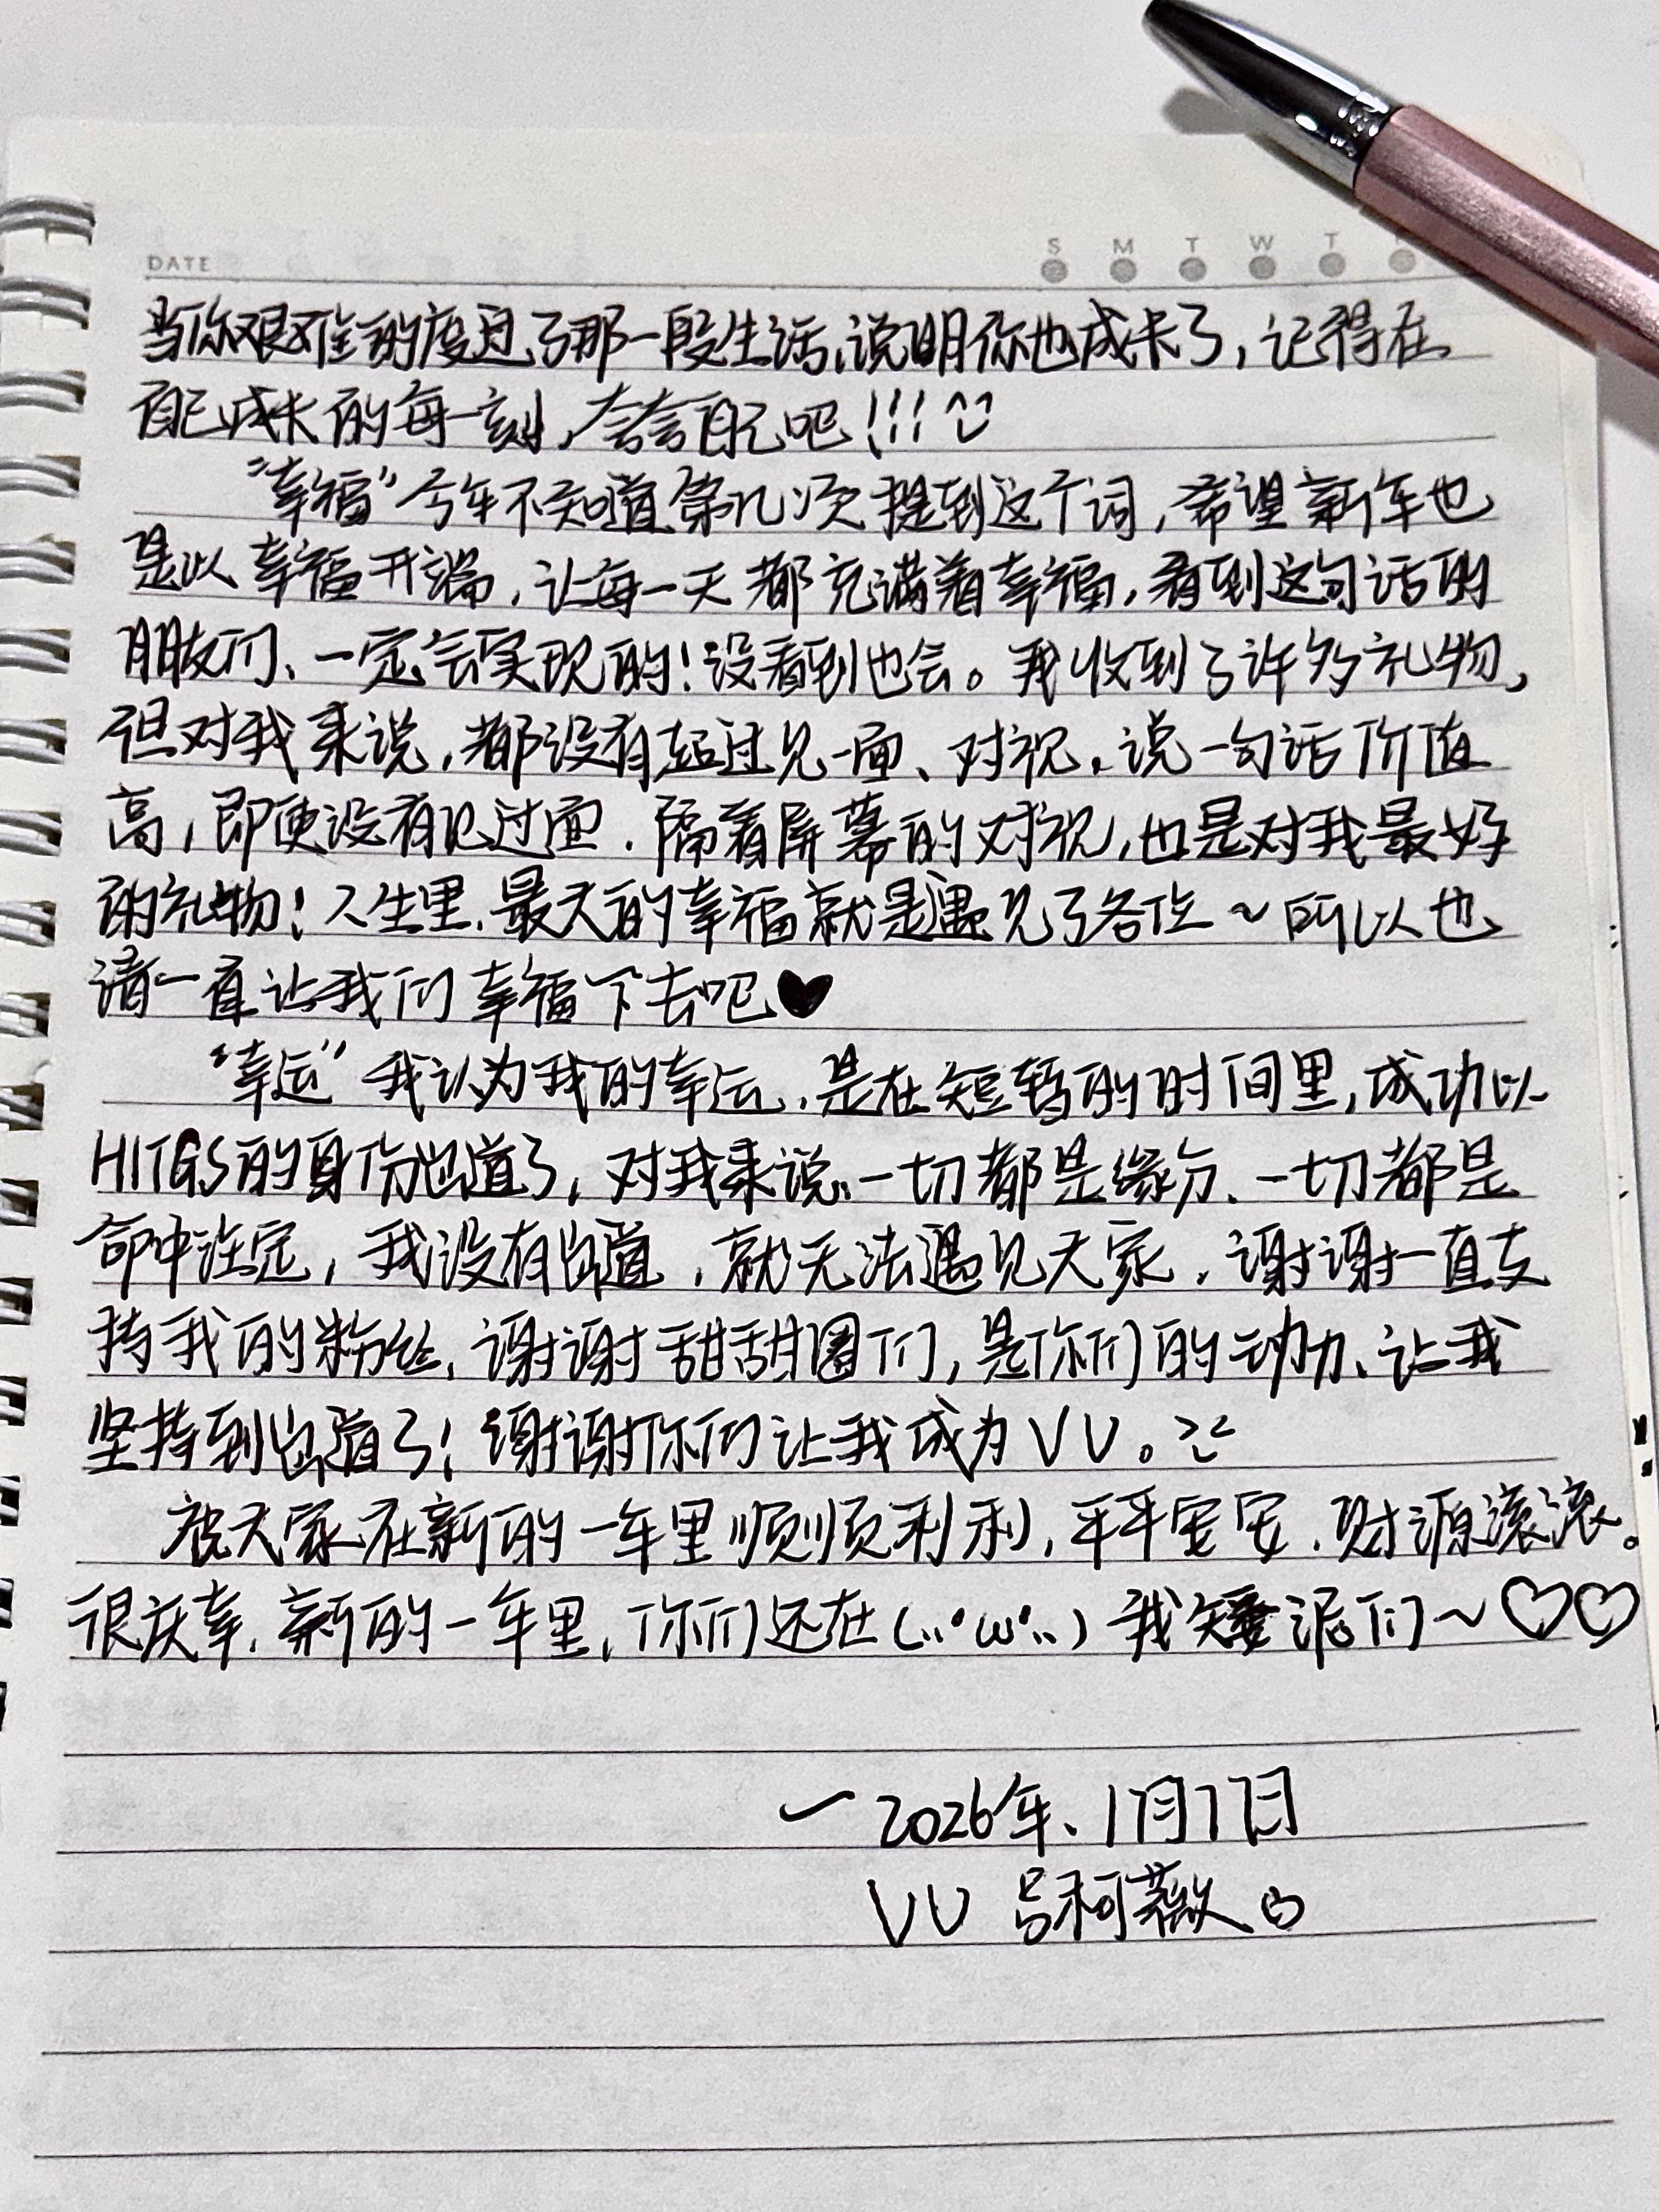 DATE S M T W T F
当你艰难的度过了那一段生活、说明你也成长了，记得在
自己成长的每一刻，夸夸自己吧！！！^^
“幸福”今年不知道第几次提到这个词，希望新年也
是以幸福开端，让每一天都充满着幸福，看到这句话的
朋友们、一定会实现的！没看到也会。我收到了许多礼物，
但对我来说，都没有超过见一面、对视、说一句话价值
高，即便没有见过面．隔着屏幕的对视，也是对我最好
的礼物！人生里、最大的幸福就是遇见了各位～所以也
请一直让我们幸福下去吧♥
“幸运”我认为我的幸运，是在短暂的时间里，成功以
HITGS的身份出道了，对我来说、一切都是缘分、一切都是
命中注定，我没有出道，就无法遇见大家．谢谢一直支
持我的粉丝、谢谢甜甜圈们，是你们的动力、让我
坚持到出道了！谢谢你们让我成为VV。
祝大家在新的一年里顺顺利利，平平安安．财源滚滚。
很庆幸、新的一年里，你们还在(..•ω•..)我矮泥们～♡♡
一2026年、1月17日
VV 吕柯薇